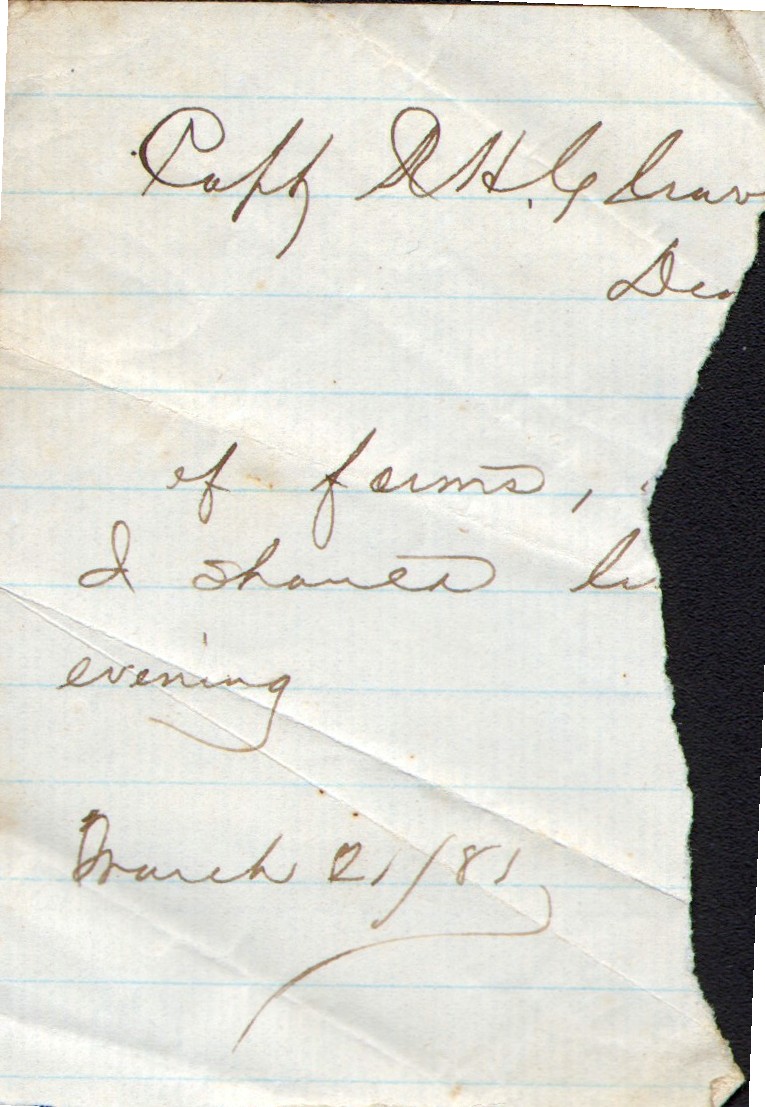 Capt R H.
Dea
of forms,
I should
evening
March 21/81